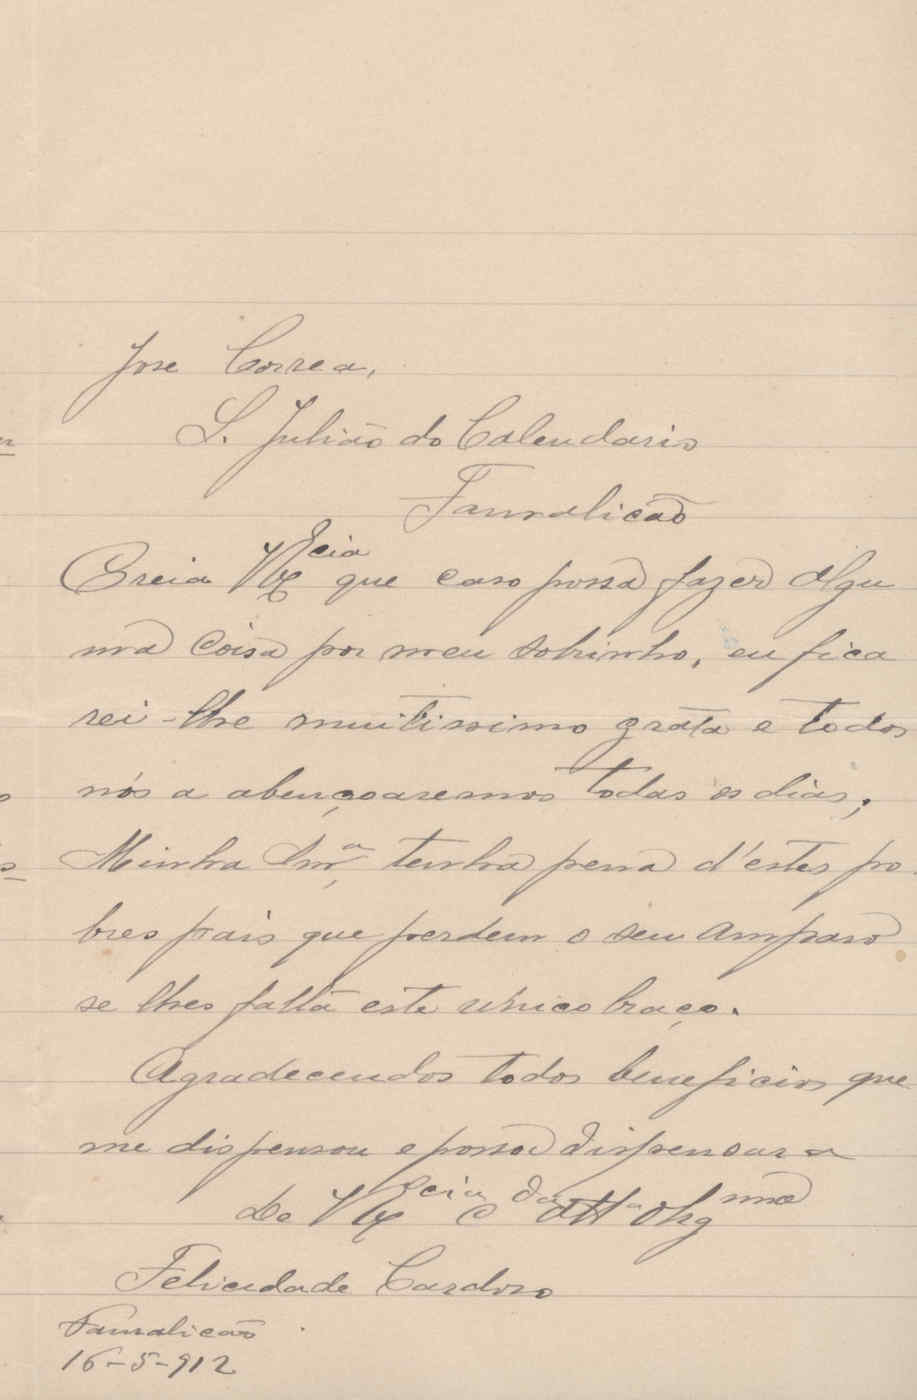 Jose Correa,
S. Julião do Calendario
Famalicão
Creia V Ex.cia que caso possa fazer algu
ma coisa por meu sobrinho, eu fica
rei-lhe muitissimo grata e todos
nós a abençoaremos todos os dias;
Minha Snr.a, tenha pena d'estes po
bres pais que perdem o seu amparo
se lhes falta este unico braço.
Agradecendos todos beneficios que
me dispensou e possa dispensar a
De V Ex.cia C da att.a Obgma
Felicidade Cardoso
Famalicão
16-5-912